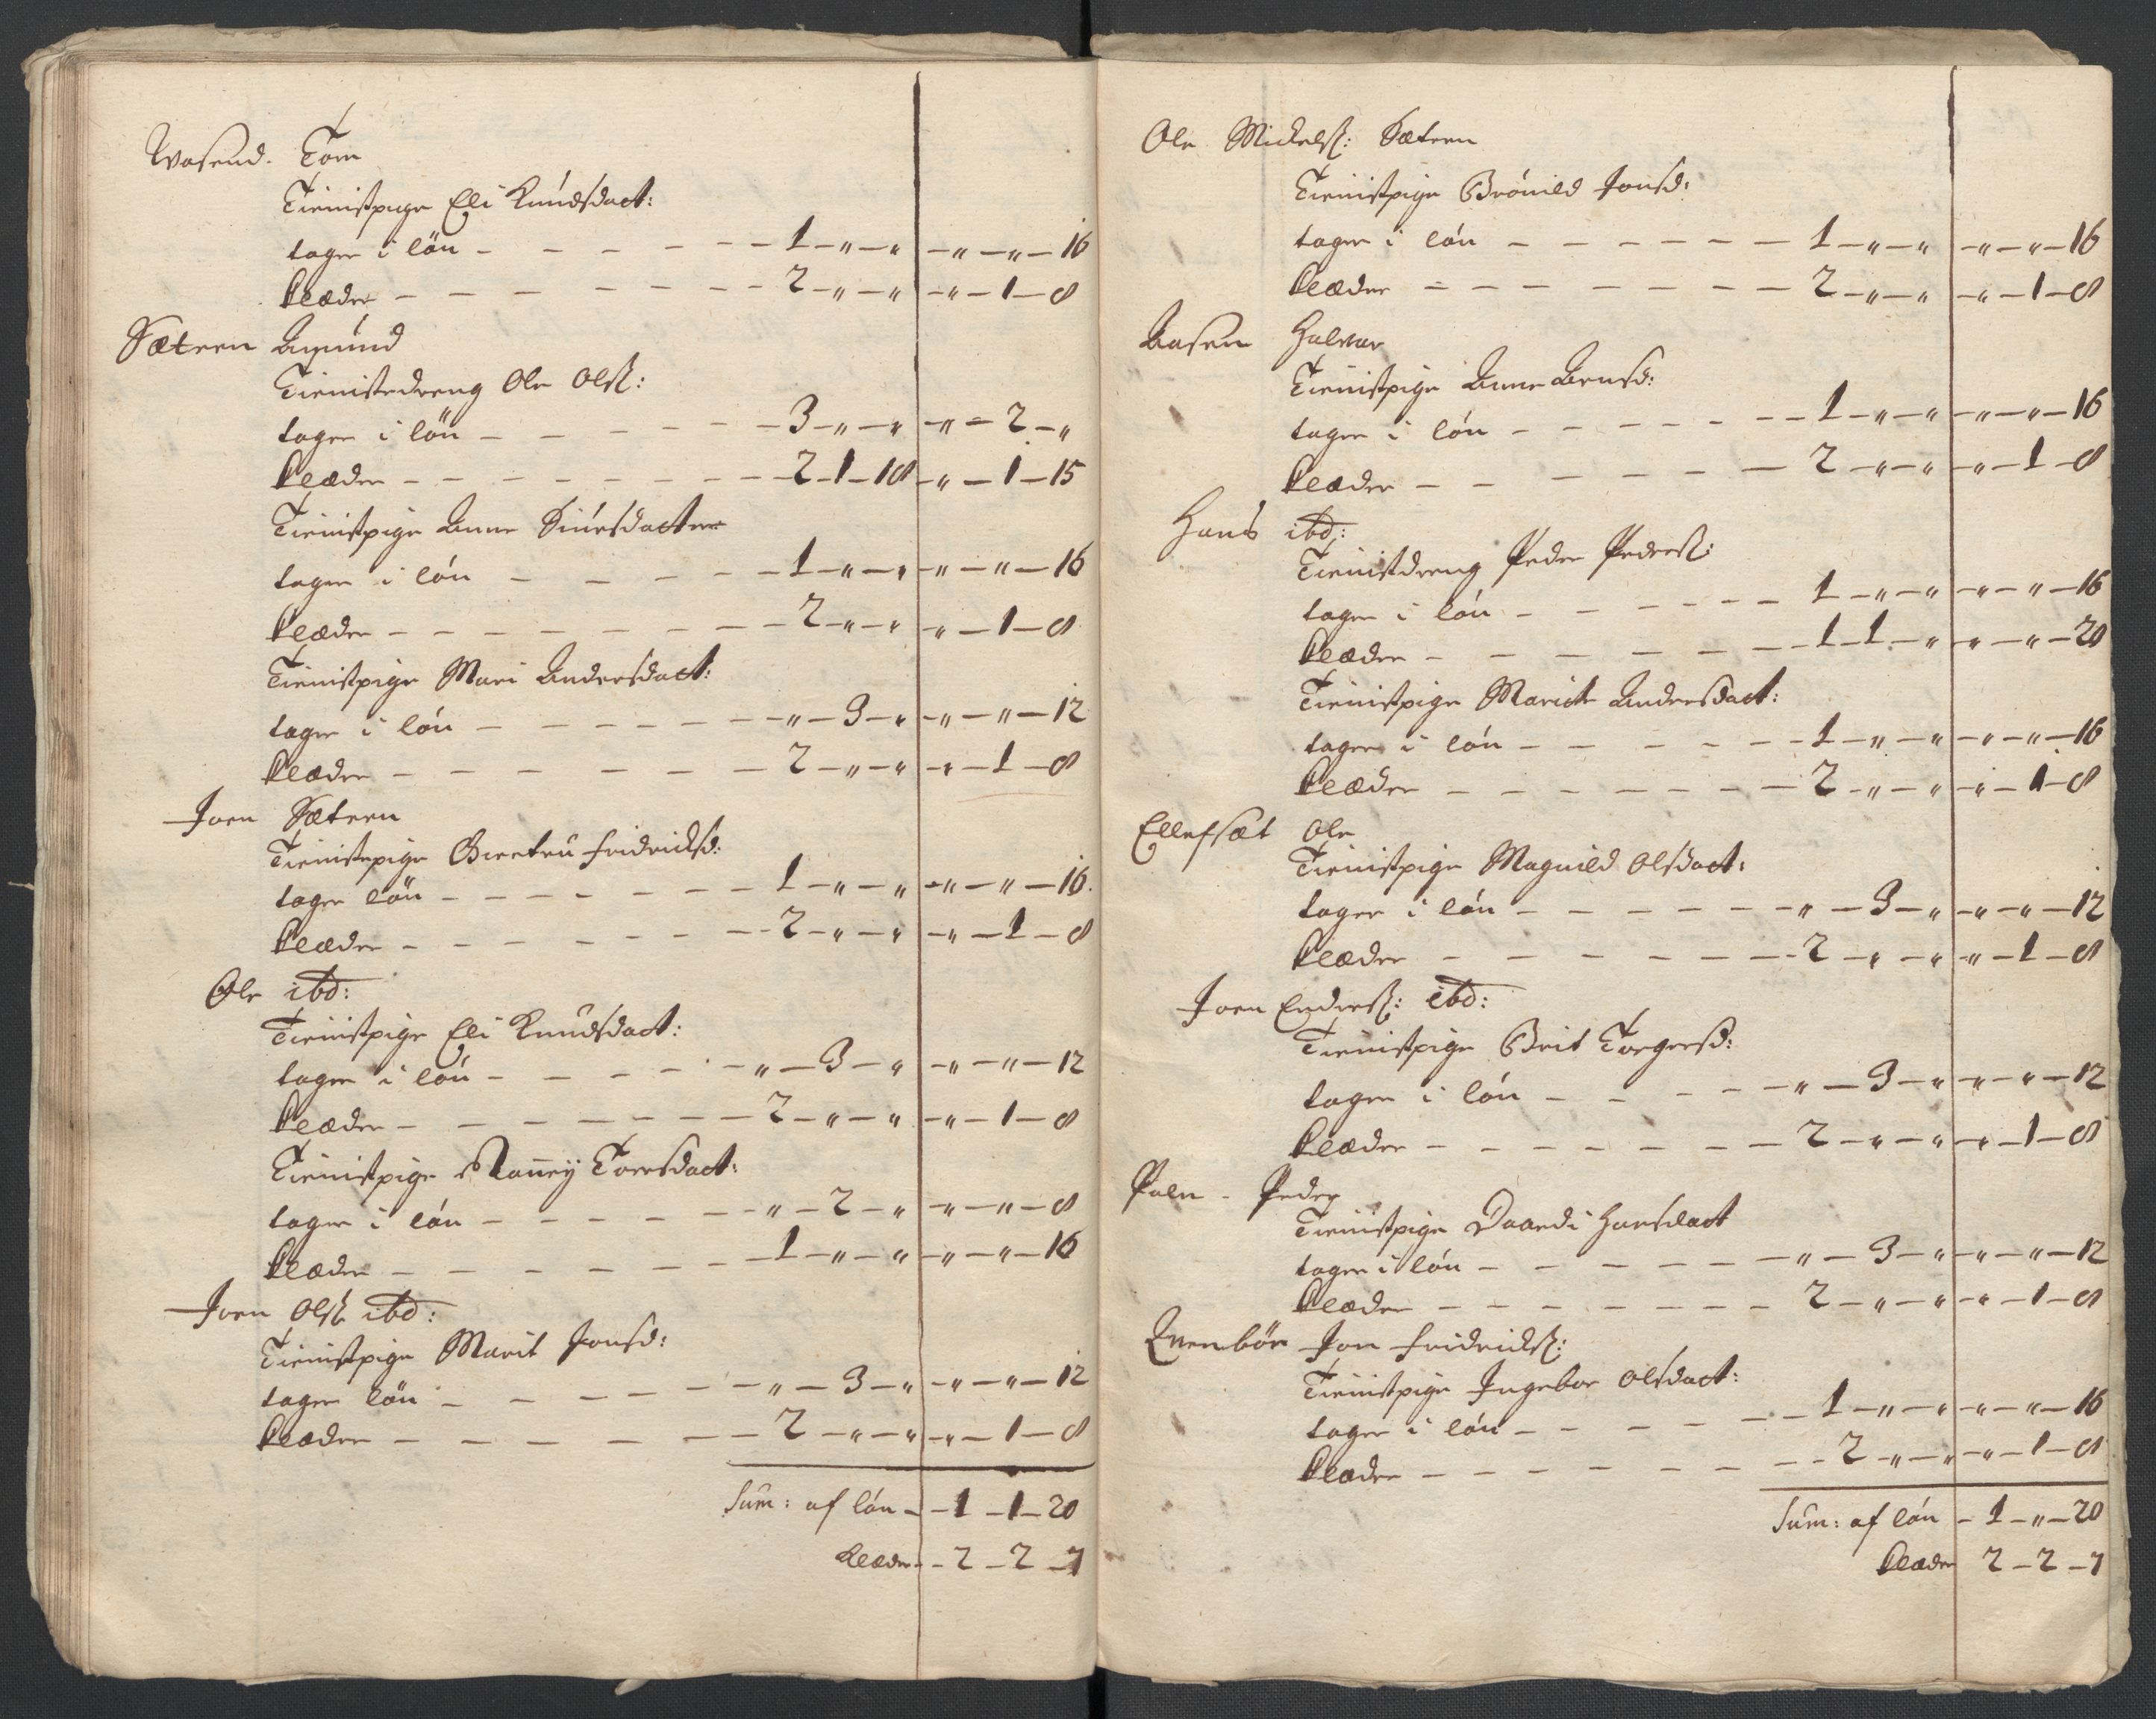 Wasend. Torn
Tienistpige Eli Knudsdact:
tager i lön - - - - - - 1 - " - " - " - " - 16
klæder - - - - - - - 2 - " - " - " - 1 - 8
Sætren Amund
Tienistedreng Ole Olss:
tager i lön - - - - - - 3 - " - " - " - 2 - "
klæder - - - - - - - 2 - 1 - 18 - " - 1 - 15
Tienistpige Anne Siursdacter
tager i lön - - - - - 1 - " - " - " - " - 16
klæder - - - - - - - 2 - " - " - " - 1 - 8
Tienistpige Mari Andersdact:
tager i lön - - - - - - " - 3 - " - " - " - 12
klæder - - - - - - - 2 - " - " - " - 1 - 8
Joen Sætren
Tienistepige Giertru Fridrichsd:
tager lön - - - - - - 1 - " - " - " - " - 16.
klæder - - - - - - - 2 - " - " - " - 1 - 8
Ole ibd:
Tienistpige Eli Knudsdact:
tager i lön - - - - - " - 3 - " - " - " - 12
klæder - - - - - - - 2 - " - " - " - 1 - 8
Tienistpige Rannej Toersdact:
tager i lön - - - - - " - 2 - " - " - " - 8
klæder - - - - - - - 1 - " - " - " - " - 16
Joen Olss ibd:
Tienistpige Marit Jonsd:
tager lön - - - - - - " - 3 - " - " - " - 12
klæder - - - - - - 2 - " - " - " - 1 - 8
Sum: af lön - 1 - 1 - 20
klæder - 2 - 2 - 7
Ole Mickelss: Sætren
Tienistpige Brönild Jonsd:
tager i lön - - - - - - 1 - " - " - " - " - 16
klæder - - - - - - - 2 - " - " - " - 1 - 8
Aasen Halvar
Tienistpige Anne Arnsd:
tager i lön - - - - - - 1 - " - " - " - " - 16
klæder - - - - - - 2 - " - " - " - 1 - 8
Hans ibd:
Tienistdreng Peder Pederss:
tager i lön - - - - - - 1 - " - " - " - " - 16
klæder - - - - - - - 1 - 1 - " - " - " - 20
Tienistpige Marite Andersdact:
tager i lön - - - - - 1 - " - " - " - " - 16
klæder - - - - - - - 2 - " - " - " - 1 - 8
Ellefsæt Ole
Tienistpige Magnild Olsdact:
tager i lön - - - - - " - 3 - " - " - " - 12
klæder - - - - - - - 2 - " - " - " - 1 - 8
Joen Enderss: ibd:
Tienistpige Brit Torgersd:
tager i lön - - - - - " - 3 - " - " - " - 12
klæder - - - - - - - 2 - " - " - " - 1 - 8
Paln - Peder
Tienistpige Daardi Hansdact
tager i lön - - - - - - " - 3 - " - " - " - 12
klæder - - - - - - - 2 - " - " - " - 1 - 8
Qvenbör Jon Fridrichss:
Tienistpige Ingebor Olsdact:
tager i lön - - - - - - 1 - " - " - " - " - 16
klæder - - - - - - - 2 - " - " - " - 1 - 8
Sum: af lön - 1 - " - 20
klæder 2 - 2 - 7